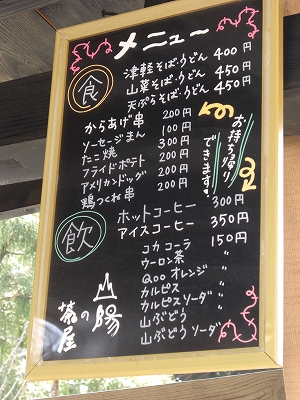 メニュー
食
津軽そば・うどん 400円
山菜そば・うどん 450円
天ぷらそば・うどん 450円
からあげ串 200円
ソーセージまん 100円
たこ焼 300円
フライドポテト 200円
アメリカンドッグ 200円
鴨つくね串 200円
お持ち帰り
できます。
飲
ホットコーヒー 300円
アイスコーヒー 350円
コカコーラ 150円
ウーロン茶 〃
Qooオレンジ 〃
カルピス 〃
カルピスソーダ 〃
山ぶどう 〃
山ぶどうソーダ 〃
山の陽
茶屋